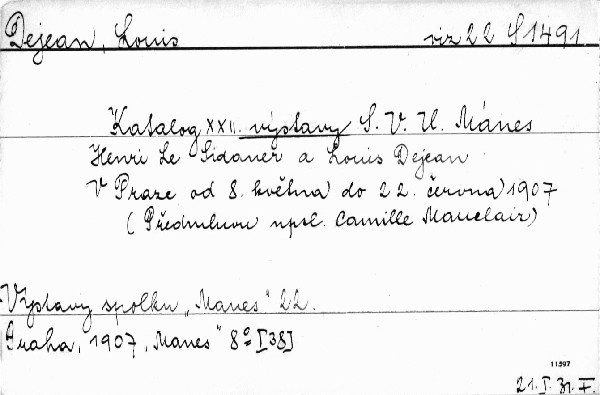 Dejean, Louis viz 22 S 1491.
Katalog XXII. výstavy S. V. U. Mánes
Henri Le Sidaner a Louis Dejean
V Praze od 8. května do 22. června 1907
(Předmluvu npsl. Camille Mauclair)
Výstavy spolku „Manes" 22.
Praha, 1907, „Manes" 8° [38]
11597
21. I. 31. F.